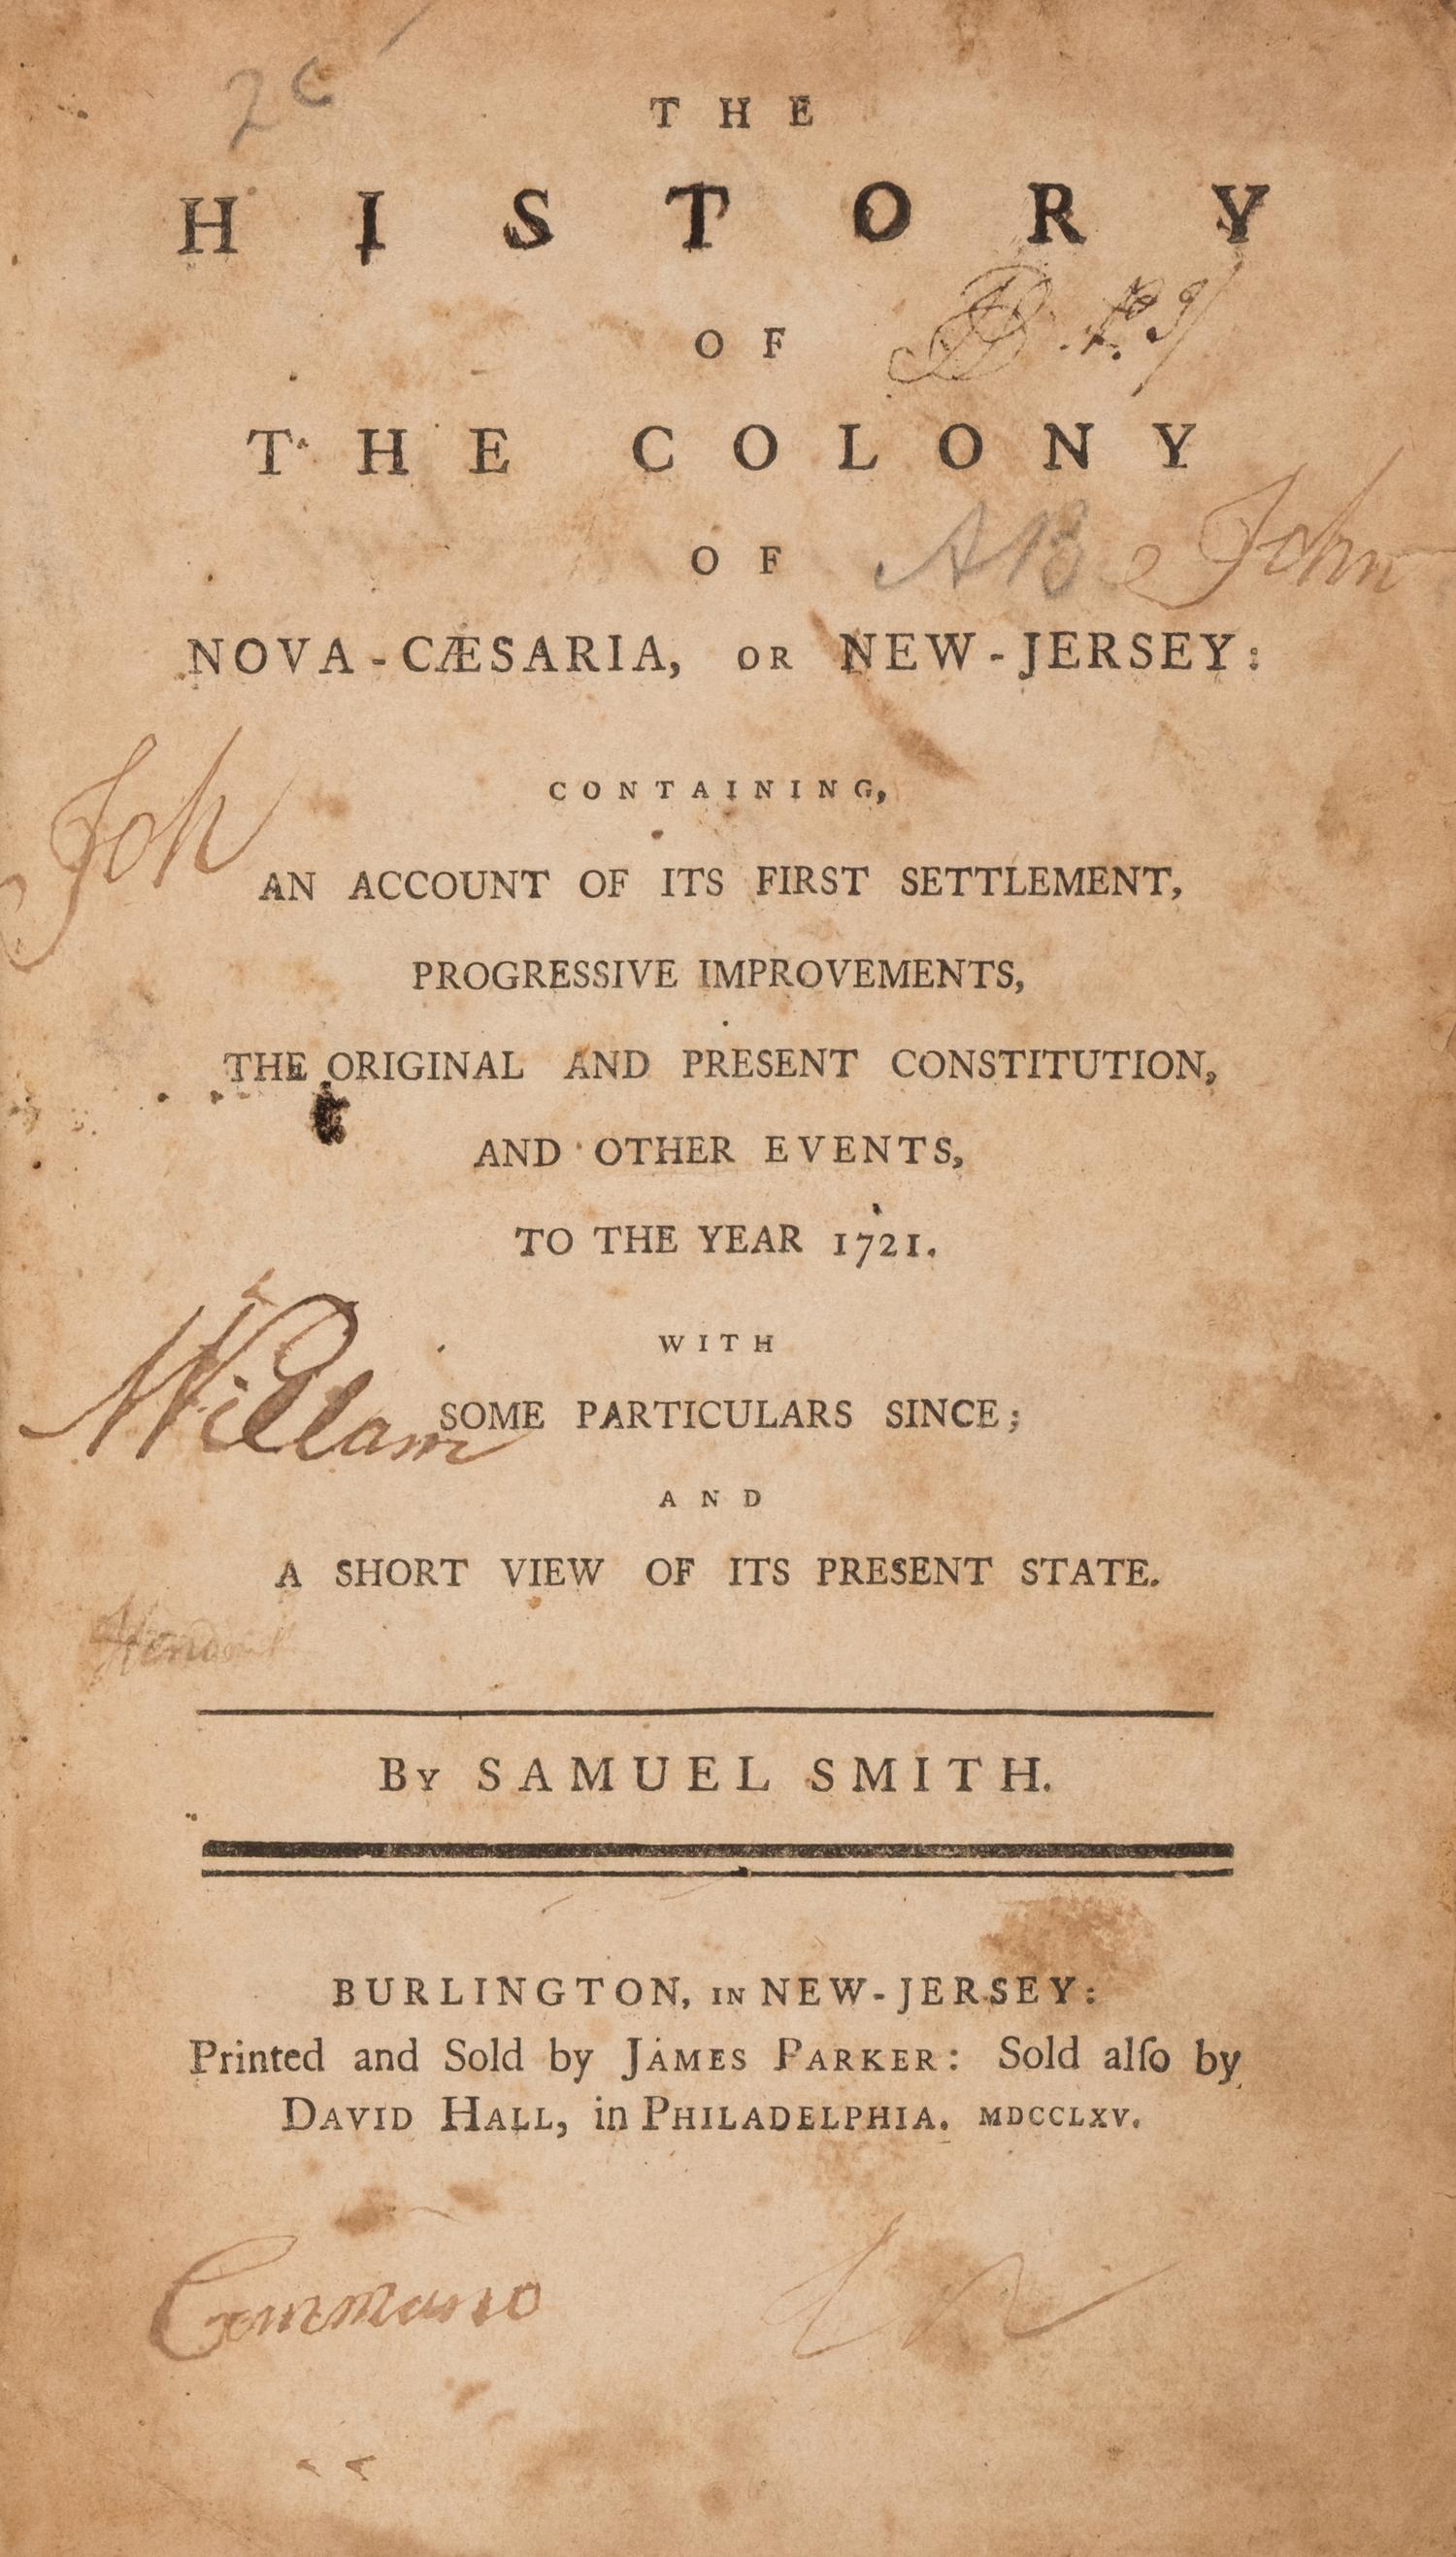 THE
HISTORY
OF
THE COLONY
OF AB John
NOVA-CÆSARIA, OR NEW-JERSEY:
Joh
CONTAINING,
AN ACCOUNT OF ITS FIRST SETTLEMENT,
PROGRESSIVE IMPROVEMENTS,
THE ORIGINAL AND PRESENT CONSTITUTION,
AND OTHER EVENTS,
TO THE YEAR 1721.
WITH
Willam
SOME PARTICULARS SINCE;
AND
A SHORT VIEW OF ITS PRESENT STATE.
By SAMUEL SMITH.
BURLINGTON, IN NEW-JERSEY:
Printed and Sold by JAMES PARKER: Sold alſo by
DAVID HALL, in PHILADELPHIA. MDCCLXV.